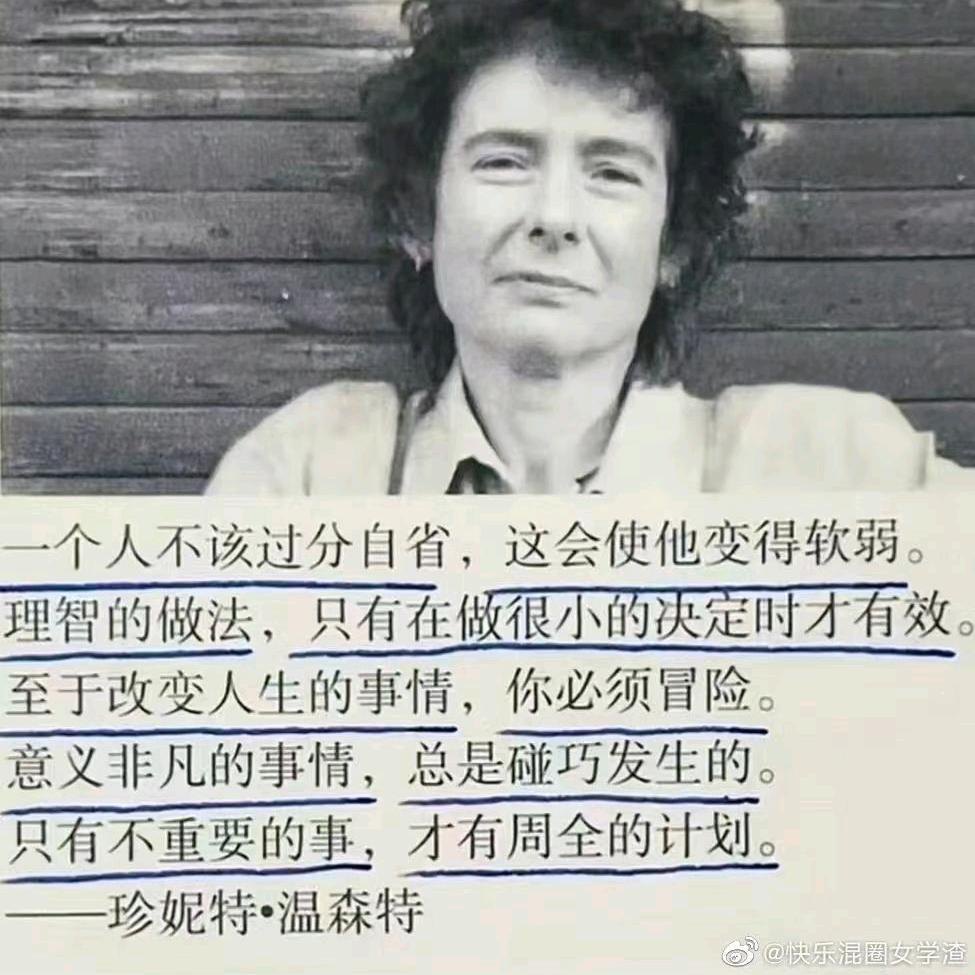 一个人不该过分自省，这会使他变得软弱。
理智的做法，只有在做很小的决定时才有效。
至于改变人生的事情，你必须冒险。
意义非凡的事情，总是碰巧发生的。
只有不重要的事，才有周全的计划。
——珍妮特•温森特
@快乐混圈女学渣